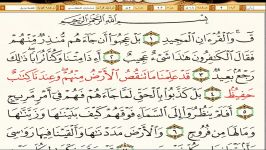 بِسْمِ اللَّهِ الرَّحْمَٰنِ الرَّحِيمِ
قٓ وَالْقُرْءَانِ الْمَجِيدِ ١ بَلْ عَجِبُوٓا۟ أَن جَآءَهُم مُّنذِرٌ مِّنْهُمْ
فَقَالَ الْكَٰفِرُونَ هَٰذَا شَىْءٌ عَجِيبٌ ٢ أَءِذَا مِتْنَا وَكُنَّا تُرَابًا ذَٰلِكَ
رَجْعٌۢ بَعِيدٌ ٣ قَدْ عَلِمْنَا مَا تَنقُصُ الْأَرْضُ مِنْهُمْ وَعِندَنَا كِتَٰبٌ
حَفِيظٌۢ ٤ بَلْ كَذَّبُوا۟ بِالْحَقِّ لَمَّا جَآءَهُمْ فَهُمْ فِىٓ أَمْرٍ مَّرِيجٍ
٥ أَفَلَمْ يَنظُرُوٓا۟ إِلَى السَّمَآءِ فَوْقَهُمْ كَيْفَ بَنَيْنَٰهَا وَزَيَّنَّٰهَا
وَمَا لَهَا مِن فُرُوجٍ ٦ وَالْأَرْضَ مَدَدْنَٰهَا وَأَلْقَيْنَا فِيهَا رَوَٰسِىَ